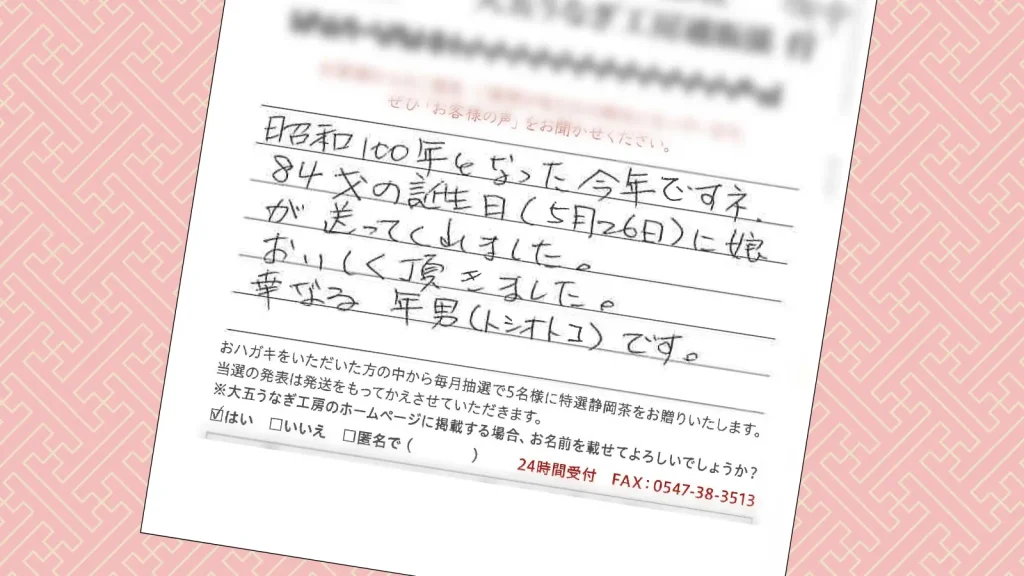 ぜひ「お客様の声」をお聞かせください。
昭和100年となった今年ですネ.
84才の誕生日(5月26日)に娘
が送ってくれました。
おいしく頂きました。
幸なる 年男(トシオトコ)です。
おハガキをいただいた方の中から毎月抽選で5名様に特選静岡茶をお贈りいたします。
当選の発表は発送をもってかえさせていただきます。
※大五うなぎ工房のホームページに掲載する場合、お名前を載せてよろしいでしょうか?
☑はい □いいえ □匿名で( )
24時間受付 FAX:0547-38-3513